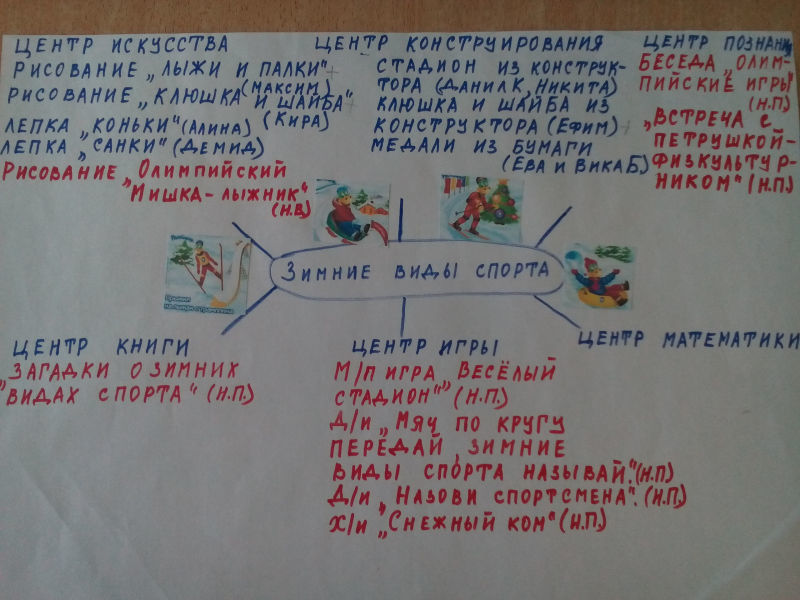 ЦЕНТР ИСКУССТВА
РИСОВАНИЕ „ЛЫЖИ И ПАЛКИ"
(МАКСИМ)
РИСОВАНИЕ „КЛЮШКА И ШАЙБА"
(КИРА)
ЛЕПКА „КОНЬКИ" (АЛИНА)
ЛЕПКА „САНКИ" (ДЕМИД)
РИСОВАНИЕ „ОЛИМПИЙСКИЙ
МИШКА-ЛЫЖНИК"
(Н.В.)
ЦЕНТР КОНСТРУИРОВАНИЯ
СТАДИОН ИЗ КОНСТРУК-
ТОРА (ДАНИЛ К, НИКИТА)
КЛЮШКА И ШАЙБА ИЗ
КОНСТРУКТОРА (ЕФИМ)
МЕДАЛИ ИЗ БУМАГИ
(ЕВА И ВИКА Б.)
ЦЕНТР ПОЗНАНИ
БЕСЕДА „ОЛИМ-
ПИЙСКИЕ ИГРЫ"
(Н.П.)
„ВСТРЕЧА С
ПЕТРУШКОЙ-
ФИЗКУЛЬТУР-
НИКОМ" (Н.П.)
ЗИМНИЕ ВИДЫ СПОРТА
Прыжки
на лыжах с трамплина
ЦЕНТР КНИГИ
„ЗАГАДКИ О ЗИМНИХ
ВИДАХ СПОРТА" (Н.П.)
ЦЕНТР ИГРЫ
М/П ИГРА „ВЕСЁЛЫЙ
СТАДИОН" (Н.П.)
Д/И „МЯЧ ПО КРУГУ
ПЕРЕДАЙ, ЗИМНИЕ
ВИДЫ СПОРТА НАЗЫВАЙ." (Н.П)
Д/И „НАЗОВИ СПОРТСМЕНА". (Н.П.)
Х/И „СНЕЖНЫЙ КОМ" (Н.П.)
ЦЕНТР МАТЕМАТИКИ